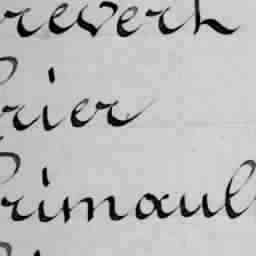 revert
rier
rimaul